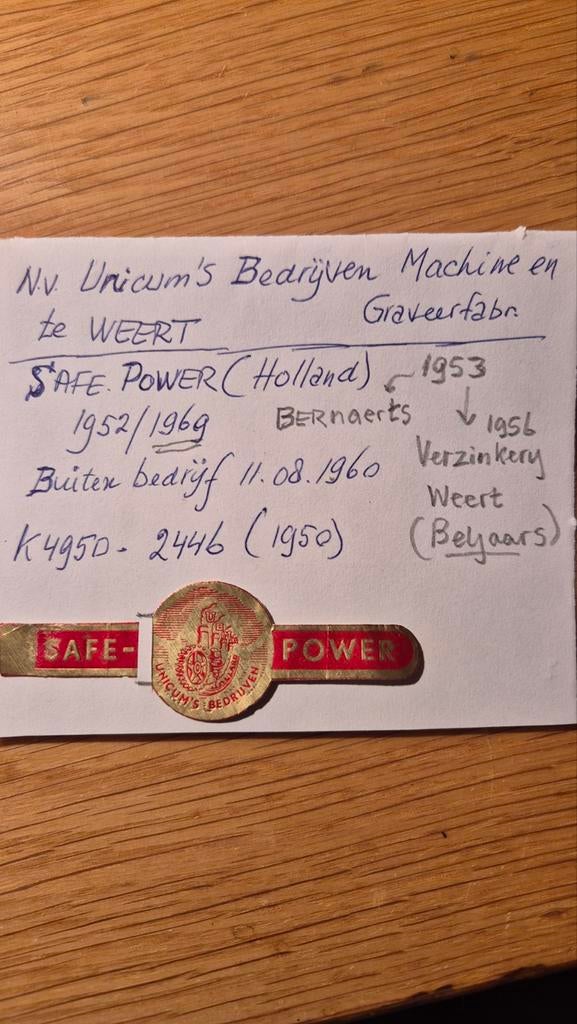 N.v. Unicum's Bedrijven Machine en
te WEERT Graveerfabr.
SAFE. POWER (Holland) 1953
1952/1969 BERnaerts 1956
Verzinkery
Buiten bedrijf 11.08.1960
Weert
K4950 - 2446 (1950) (Beljaars)
SAFE- POWER
UNICUM'S BEDRIJVEN